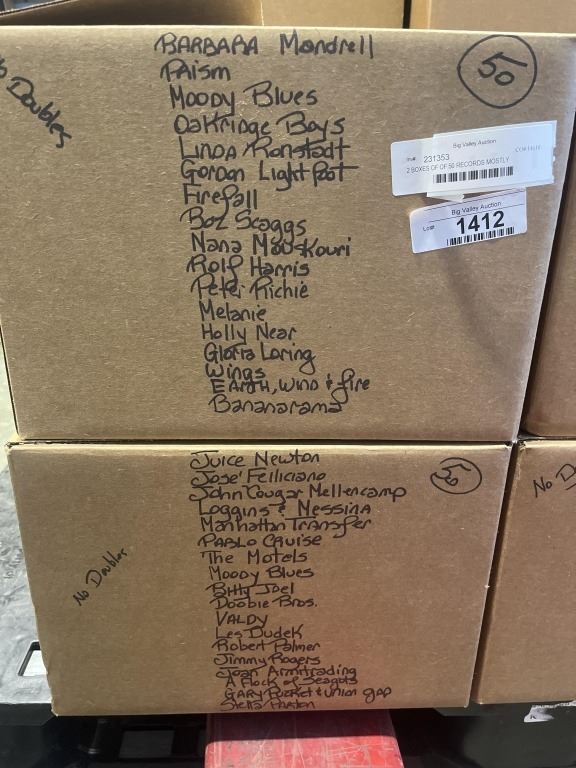 No Doubles
BARBARA Mandrell
50
PRISM
MOODY Blues
OaKRidge Boys
LINDA Ronstadt
Gordon Lightfoot
Firefall
Boz Scaggs
Nana Mouskouri
Rolf Harris
Peter Richie
Melanie
Holly Near
Gloria Loring
Wings
EARTH, WIND & fire
Bananarama
Big Valley Auction
Inv#: 231353
2 BOXES OF OF 50 RECORDS MOSTLY
Big Valley Auction
Lot#: 1412
Juice Newton
50
Jose' Feliciano
John Cougar Mellencamp
Loggins & Messina
Manhattan Transfer
PABLO Cruise
The Motels
MOODY Blues
Billy Joel
Doobie Bros.
VALDY
Les Dudek
Robert Palmer
Jimmy Rogers
Joan Armitrading
A Flock of Seagulls
GARY Pucket & union gap
No Doubles
No D